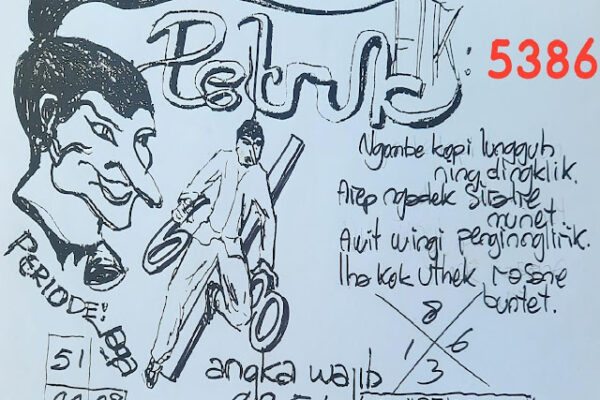 Petruk
EK: 5386
Ngombe kopi lungguh
ning dingklik.
Arep ngadek Sirahe
munet.
Awit wingi penginnglirik.
lha kok Uthek rasane
buntet.
PERIODE:
8
1 6
3
51
angka wajib